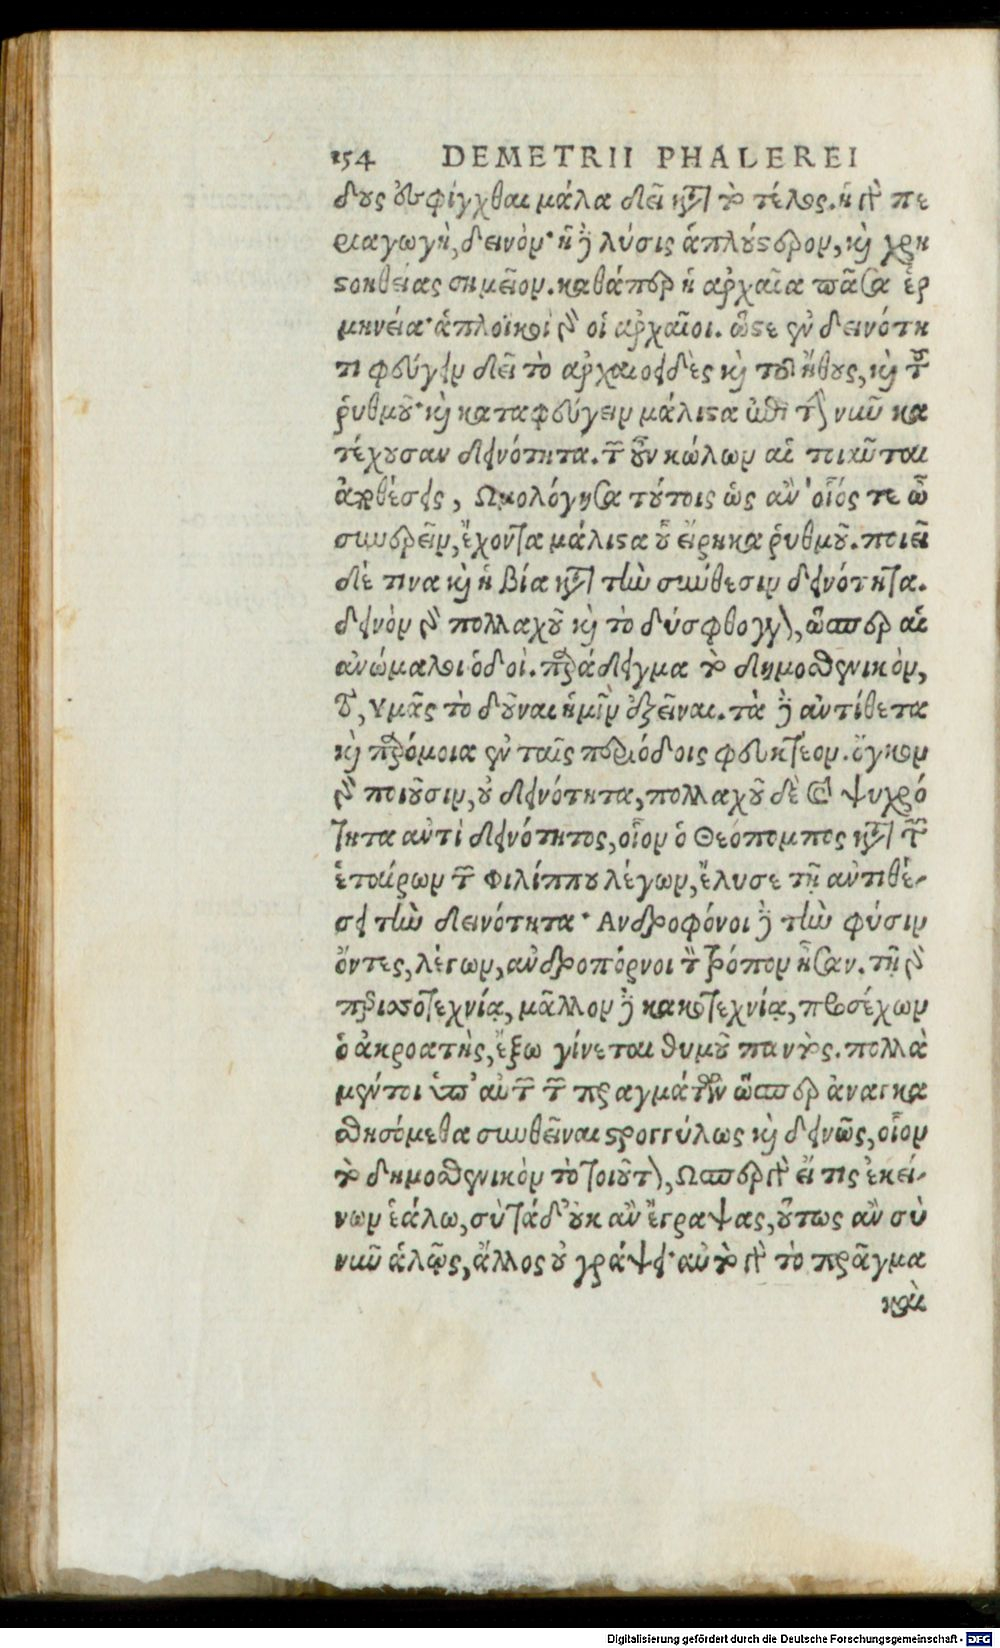 154 DEMETRII PHALEREI
δους ἐσφίγχθαι μάλα δεῖ κατὰ τὸ τέλος. ἡ γὰρ πε
ριαγωγὴ, δεινόν· ἡ δὲ λύσις ἁπλούστερον, καὶ χρη
στοηθείας σημεῖον. καθάπερ ἡ ἀρχαῖα πᾶσα ἑρ
μηνεία· ἁπλοϊκοὶ γὰρ οἱ ἀρχαῖοι. ὥστε ἐν δεινότη
τι φεύγειν δεῖ τὸ ἀρχαιοειδὲς καὶ τοῦ ἤθους, καὶ τοῦ
ῥυθμοῦ· καὶ καταφεύγειν μάλιστα ἐπὶ τὴν νῦν κα
τέχουσαν δεινότητα. τῶν οὖν κώλων αἱ τοιαῦται
ἀποθέσεις, Ωμολόγησα τούτοις ὡς ἂν οἷός τε ὦ
συνερεῖν, ἔχονται μάλιστα οὗ εἴρηκα ῥυθμοῦ. ποιεῖ
δέ τινα καὶ ἡ βία κατὰ τὴν σύνθεσιν δεινότητα.
δεινὸν γὰρ πολλαχοῦ καὶ τὸ δύσφθογγον, ὥσπερ αἱ
ἀνώμαλοι ὁδοί. παράδειγμα τὸ δημοσθενικὸν,
τὸ, Υμᾶς τὸ δοῦναι ἡμῖν ἐξεῖναι. τὰ δὲ ἀντίθετα
καὶ παρόμοια ἐν ταῖς περιόδοις φευκτέον. ὄγκον
γὰρ ποιοῦσιν, οὐ δεινότητα, πολλαχοῦ δὲ καὶ ψυχρό
τητα ἀντὶ δεινότητος, οἷον ὁ Θεόπομπος κατὰ τῶν
ἑταίρων τοῦ Φιλίππου λέγων, ἔλυσε τῇ ἀντιθέ-
σει τὴν δεινότητα· Ανδροφόνοι δὲ τὴν φύσιν
ὄντες, λέγων, ἀνδροπόρνοι τὸν τρόπον ἦσαν. τῇ γὰρ
περισσοτεχνίᾳ, μᾶλλον δὲ κακοτεχνίᾳ, προσέχων
ὁ ἀκροατὴς, ἔξω γίνεται θυμοῦ παντός. πολλὰ
μέντοι ὑπ' αὐτῶν τῶν πραγμάτων ὥσπερ ἀναγκα
σθησόμεθα συνθεῖναι στρογγύλως καὶ δεινῶς, οἷον
τὸ δημοσθενικὸν τὸ τοιοῦτον, Ωσπερ γὰρ εἴ τις ἐκεί-
νων ἑάλω, σὺ τάδ' οὐκ ἂν ἔγραψας, οὕτως ἂν σὺ
νῦν ἁλῷς, ἄλλος οὐ γράψει· αὐτὸ γὰρ τὸ πρᾶγμα
καὶ
Digitalisierung gefördert durch die Deutsche Forschungsgemeinschaft - DFG